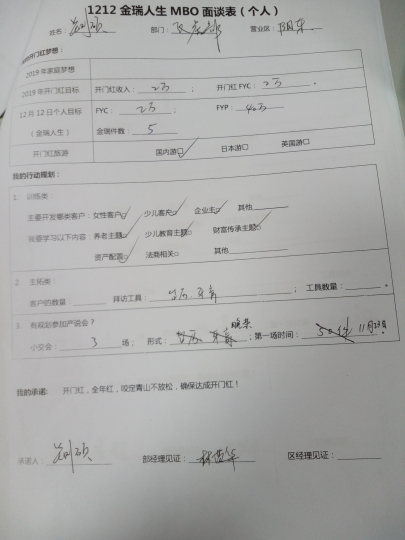 1212金瑞人生MBO面谈表（个人）
姓名： 部门： 营业区：阳东
开门红梦想：
2019年家庭梦想
2019年开门红目标 开门红收入：2万； 开门红FYC：2万。
12月12日个人目标（金瑞人生） FYC：2万； FYP：40万
金瑞件数：5
开门红旅游 国内游□✓ 日本游□ 英国游□
我的行动规划：
1. 训练类：
主要开发哪类客户：女性客户□✓ 少儿客户□✓ 企业主□✓ 其他
我要学习以下内容：养老主题□✓ 少儿教育主题□✓ 财富传承主题□✓
资产配置□✓ 法商相关□ 其他
2. 主拓类：
客户的数量： 拜访工具： ；工具数量： 。
3. 有规划参加产说会？
小交会：3场； 形式： ；第一场时间：11月29日
我的承诺： 开门红，全年红，咬定青山不放松，确保达成开门红！
承诺人： 部经理见证： 区经理见证：